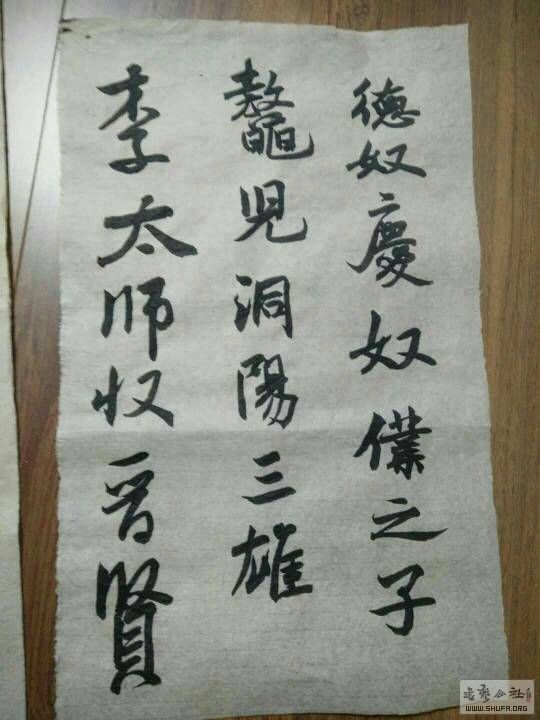 德奴慶奴僕之子
鼇兒洞陽三雄
李太師収晋賢
書藝公社
WWW.SHUFA.ORG